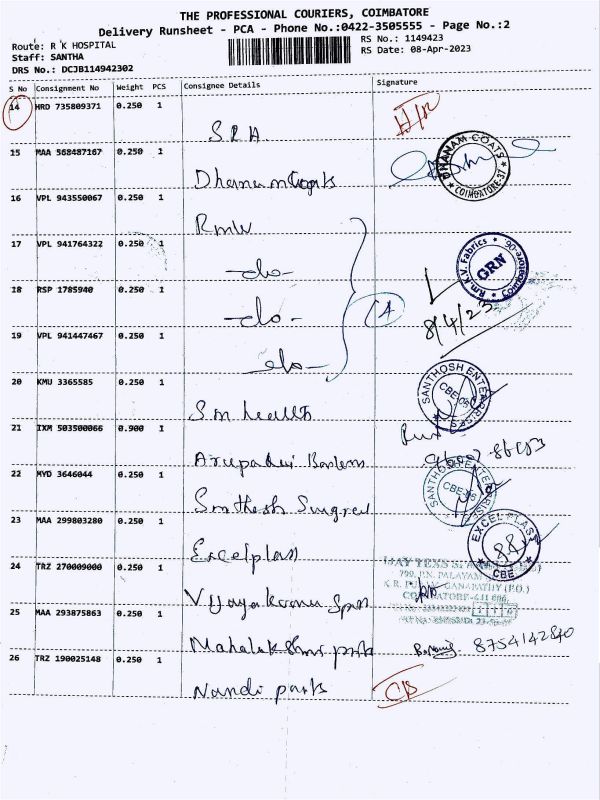 THE PROFESSIONAL COURIERS, COIMBATORE
Delivery Runsheet - PCA - Phone No.:0422-3505555 - Page No.:2
Route: R K HOSPITAL
Staff: SANTHA
DRS No.: DCJB114942302
RS No.: 1149423
RS Date: 08-Apr-2023
S No Consignment No Weight PCS Consignee Details Signature
14 HRD 735809371 0.250 1
15 MAA 568487167 0.250 1
DHANAM COATS
COIMBATORE-37
Dhanam Coats
16 VPL 943550067 0.250 1
Rmkv
17 VPL 941764322 0.250 1
Rm.K.V. Fabrics
GRN
Coimbatore-06
-do-
18 RSP 1785940 0.250 1
-do-
8/4/23
19 VPL 941447467 0.250 1
-do-
20 KMU 3365585 0.250 1
SANTHOSH ENTERPRISES
CBE-06
Sm health
21 IXM 503500066 0.900 1
22 MYD 3646044 0.250 1
SANTHOSH ENTERPRISES
CBE-06
Santhosh
23 MAA 299803280 0.250 1
EXCEL PLAST
CBE
Excelplast
24 TRZ 270009000 0.250 1
25 MAA 293875863 0.250 1
Mahalakshmi
8754142840
26 TRZ 190025148 0.250 1
Nandi parts